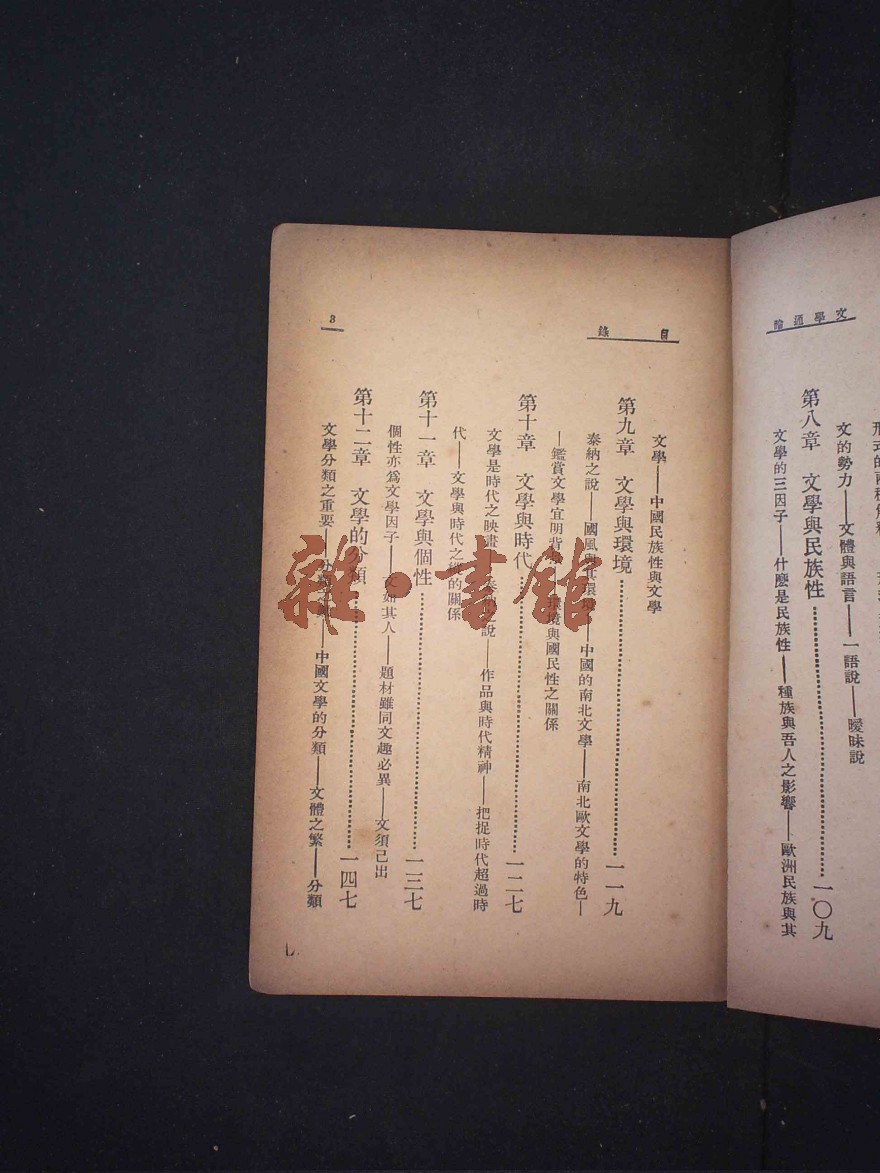 文學通論
文的勢力——文體與語言——一語說——曖昧說
第八章　文學與民族性…………一〇九
文學的三因子——什麼是民族性——種族與吾人之影響——歐洲民族與其
目錄
文學——中國民族性與文學
第九章　文學與環境…………一一九
泰納之說——國風與其環境——中國的南北文學——南北歐文學的特色—
—鑑賞文學宜明背景——環境與國民性之關係
第十章　文學與時代…………一二七
文學是時代之映畫——泰納之說——作品與時代精神——把捉時代超過時
代——文學與時代之縱的關係
第十一章　文學與個性…………一三七
個性亦爲文學因子——文如其人——題材雖同文趣必異——文須己出
第十二章　文學的分類…………一四七
文學分類之重要——分類——中國文學的分類——文體之繁——分類
3
雜·書館